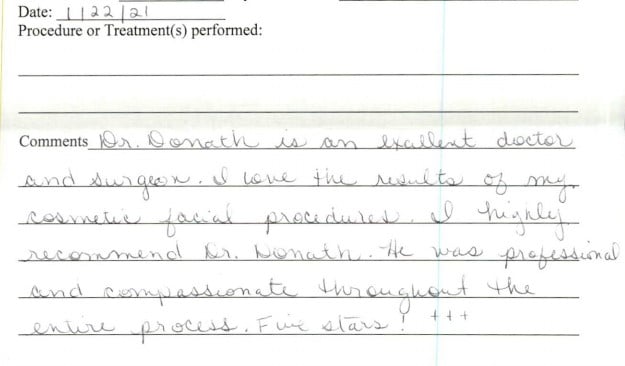 Date: 1/22/21
Procedure or Treatment(s) performed:
Comments Dr. Donath is an excellent doctor
and surgeon. I love the results of my
cosmetic facial procedures. I highly
recommend Dr. Donath. He was professional
and compassionate throughout the
entire process. Five stars! +++